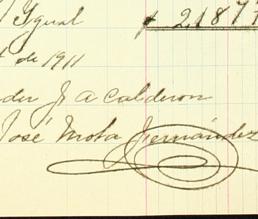 Ygual $ 2187
de 1911
Jr A Calderon
José Mota Fernández